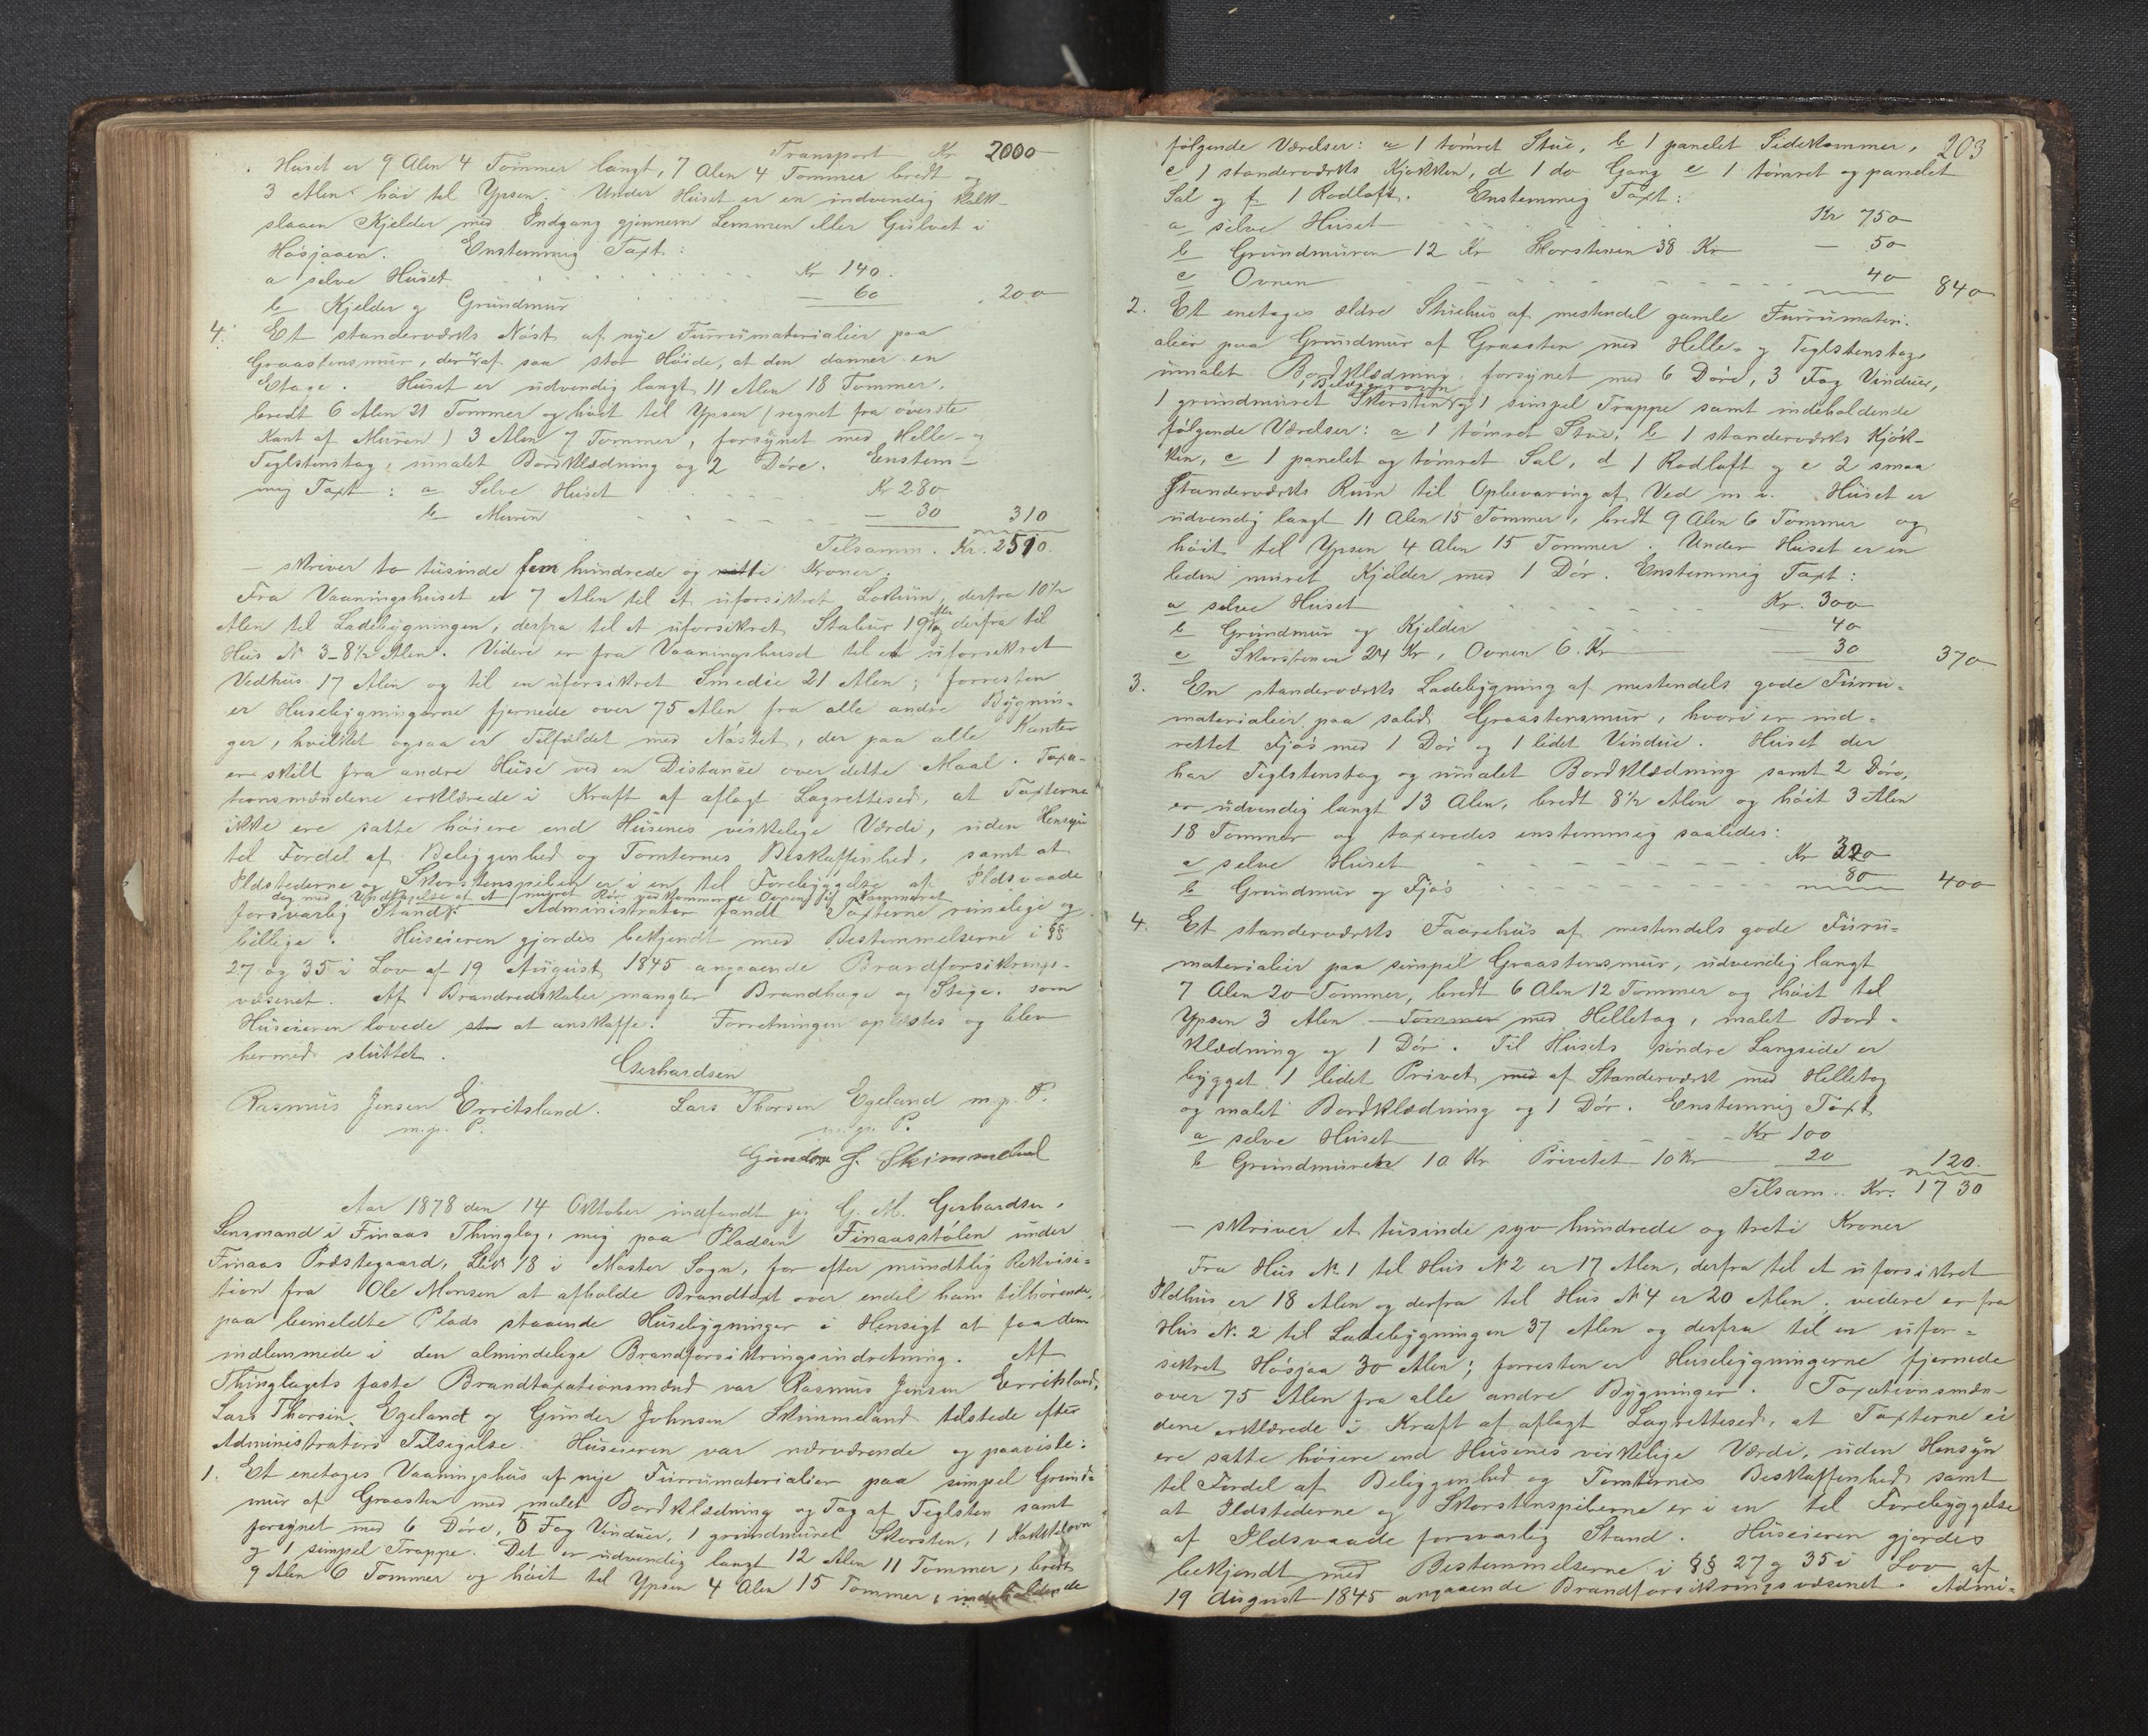 Transport Kr 2000
Huset er 9 Alen 4 Tommer langt, 7 Alen 4 Tommer bredt og
3 Alen høi til Ypsen. Under Huset er en indvendig kalk-
slaaen Kjelder med Indgang gjennem Lemmen eller Gulvet i
Høsjaaen. Enstemmig Taxt:
a selve Huset Kr 140.
b Kjelder og Grundmur — 60 200
4. Et standerværks Nøst af nye Furrumaterialier paa
Graastensmur, der er af saa stor Høide, at den danner en
Etage. Huset er udvendig langt 11 Alen 18 Tommer,
bredt 6 Alen 21 Tommer og høit til Ypsen (regnet fra øverste
Kant af Muren) 3 Alen 7 Tommer, forsynet med Helle- og
Teglstenstag, umalet Bordklædning og 2 Døre. Enstem-
mig Taxt: a Selve Huset Kr 280
b Muren — 30 310
Tilsamm. Kr. 2510.
— skriver to tusinde fem hundrede og ti Kroner.
Fra Vaaningshuset er 7 Alen til et uforsikret Lokum, derfra 10½
Alen til Ladebygningen, derfra til et uforsikret Stabur 19 Alen og derfra til
Hus N 3 - 8½ Alen. Videre er fra Vaaningshuset til et uforsikret
Vedhus 17 Alen og til en uforsikret Smedie 21 Alen; forresten
er Husebygningerne fjernede over 75 Alen fra alle andre Bygnin-
ger, hvilket ogsaa er Tilfældet med Nøstet, der paa alle Kanter
er skilt fra andre Huse ved en Distance over dette Maal. Taxa-
tionsmændene erklærede i Kraft af aflagt Lagrettesed, at Taxterne
ikke ere satte høiere end Husenes virkelige Værdi, uden Hensyn
til Fordel af Beliggenhed og Tomternes Beskaffenhed, samt at
Ildstederne og Skorstenspiben er i en til Forebyggelse af Ildsvaade
dog med Undtagelse af et muret Rør vedkommende Ovnen i Kammeret
forsvarlig Stand. Administrator fandt Taxterne rimelige og
billige. Huseieren gjordes bekjendt med Bestemmelserne i §§
27 og 35 i Lov af 19 August 1845 angaaende Brandforsikrings-
væsenet. Af Brandredskaber mangler Brandhage og Stige, som
Huseieren lovede at anskaffe. Forretningen oplæstes og blev
hermed sluttet.
Gerhardsen
Rasmus Jensen Erritsland. Lars Thorsen Egeland m. p. P.
m. p. P. m. p. P.
Gunder J. Skimmeland
Aar 1878 den 14 Oktober indfandt jeg G. M. Gerhardsen,
Lensmand i Finaas Thinglag, mig paa Pladsen Finaasstølen under
Finaas Præstegaard, LbN 18 i Moster Sogn, for efter mundtlig Rekvisi-
tion fra Ole Monsen at afholde Brandtaxt over endel ham tilhørende,
paa bemeldte Plads staaende Husebygninger i Hensigt at faa dem
indlemmede i den almindelige Brandforsikringsindretning. Af
Thinglagets faste Brandtaxationsmænd var Rasmus Jensen Erritsland,
Lars Thorsen Egeland og Gunder Johnsen Skimmeland tilstede efter
Administrators Tilsigelse. Huseieren var nærværende og paaviste:
1. Et enetages Vaaningshus af nye Furrumaterialier paa simpel Grund-
mur af Graasten med malet Bordklædning og Tag af Teglsten samt
forsynet med 6 Døre, 5 Fag Vinduer, 1 grundmuret Skorsten, 1 Kakkelovn
og 1 simpel Trappe. Det er udvendig langt 12 Alen 11 Tommer, bredt
9 Alen 6 Tommer og høit til Ypsen 4 Alen 15 Tommer, indeholdende
203
følgende Værelser: a 1 tømret Stue, b 1 panelet Sidekammer,
c 1 standerværks Kjøkken, d 1 do Gang e 1 tømret og panelet
Sal og f 1 Rodloft. Enstemmig Taxt:
a selve Huset Kr 750
b Grundmuren 12 Kr Skorstenen 38 Kr — 50
c Ovnen 40 840
2. Et enetages ældre Stuehus af mestendel gamle Furrumateri-
alier paa Grundmur af Graasten med Helle- og Teglstenstag,
umalet Bordklædning, forsynet med 6 Døre, 3 Fag Vinduer,
1 Bilæggerovn
1 grundmuret Skorsten og 1 simpel Trappe samt indeholdende
følgende Værelser: a 1 tømret Stue, b 1 standerværks Kjøk-
ken, c 1 panelet og tømret Sal, d 1 Rodloft og e 2 smaa
Standerværks Rum til Opbevaring af Ved m. v. Huset er
udvendig langt 11 Alen 15 Tommer, bredt 9 Alen 6 Tommer og
høit til Ypsen 4 Alen 15 Tommer. Under Huset er en
liden muret Kjelder med 1 Dør. Enstemmig Taxt:
a selve Huset Kr. 300
b Grundmur og Kjelder — 40
c Skorstenen 24 Kr, Ovnen 6. Kr — 30 370
3. En standerværks Ladebygning af mestendels gode Furru-
materialier paa solid Graastensmur, hvori er ind-
rettet Fjøs med 1 Dør og 1 lidet Vindue. Huset der
har Teglstenstag og umalet Bordklædning samt 2 Døre,
er udvendig langt 13 Alen, bredt 8½ Alen og høit 3 Alen
18 Tommer og taxeredes enstemmig saaledes:
a selve Huset Kr 320
b Grundmur og Fjøs 80 400
4. Et standerværks Faarehus af mestendels gode Furu-
materialier paa simpel Graastensmur, udvendig langt
7 Alen 20 Tommer, bredt 6 Alen 12 Tommer og høit til
Ypsen 3 Alen — Tommer med Helletag, malet Bord-
klædning og 1 Dør. Til Husets søndre Langside er
bygget 1 lidet Privet med af Standerværk med Helletag
og malet Bordklædning og 1 Dør. Enstemmig Taxt
a selve Huset Kr 100
b Grundmuren 10 Kr Privetet 10 Kr 20 120.
Tilsam.. Kr. 1730
— skriver et tusinde syv hundrede og treti Kroner
Fra Hus N. 1 til Hus N 2 er 17 Alen, derfra til et uforsikret
Ildhus er 18 Alen og derfra til Hus N 4 er 20 Alen; videre er fra
Hus N. 2 til Ladebygningen 37 Alen og derfra til en ufor-
sikret Høsjaa 30 Alen; forresten er Husebygningerne fjernede
over 75 Alen fra alle andre Bygninger. Taxationsmæn-
dene erklærede i Kraft af aflagt Lagrettesed, at Taxterne ei
ere satte høiere end Husenes virkelige Værdi, uden Hensyn
til Fordel af Beliggenhed og Tomternes Beskaffenhed samt
at Ildstederne og Skorstenspiberne er i en til Forebyggelse
af Ildsvaade forsvarlig Stand. Huseieren gjordes
bekjendt med Bestemmelserne i §§ 27 og 35 i Lov af
19 August 1845 angaaende Brandforsikringsvæsenet. Admi-